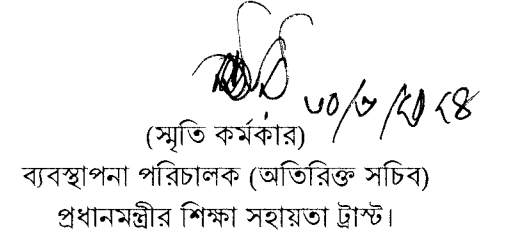 ৩০/৬/২০২৪
(স্মৃতি কর্মকার)
ব্যবস্থাপনা পরিচালক (অতিরিক্ত সচিব)
প্রধানমন্ত্রীর শিক্ষা সহায়তা ট্রাস্ট।